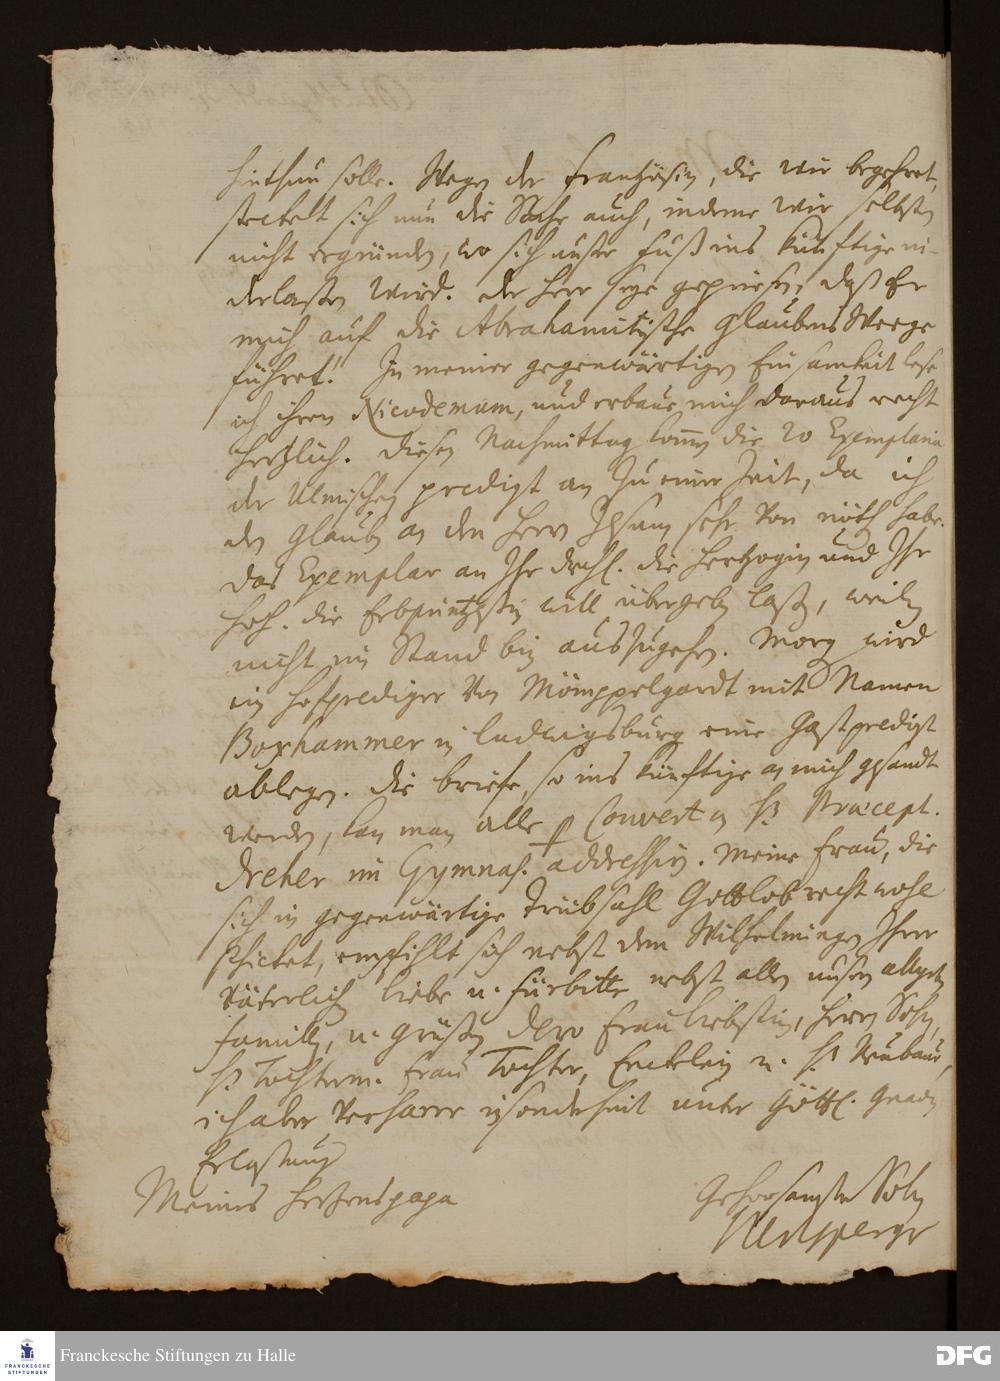 hinthun solle. Wegen der Frantzösin, die wir begehret,
stecket sich nun die Sache auch, indeme wir selbsten
nicht ergründen, wo sich unser Fuß ins künftige ni-
derlaßen wird. Der Herr seye gepriesen, daß Er
mich auf die Abrahamitische Glaubens Weege
führet! In meiner gegenwärtigen Einsamkeit lese
ich ihren Nicodemum, und erbaue mich daraus recht
hertzlich. Diesen Nachmittag komen die 20 Exemplaria
der Ulmischen predigt an zu einer Zeit, da ich
den Glauben an den Herrn Jesum sehr von nöth habe.
Das Exemplar an Ihr Drchl. die Hertzogin und Ihr
Hoh. die Erbprintzeßin will übergeben laßen, weilen
nicht im Stand bin auszugehen. Morgen wird
ein Hofprediger von Mömppelgardt mit Namen
Boxhammer in Ludwigsburg eine Gastpredigt
ablegen. Die briefe, so ins künftige an mich gesandt
werden, kan man alle p Couvert an H. Præcept.
Dreher im Gymnas. addressiren. Meine Frau, die
sich in gegenwärtige Trübsahl Gottlob recht wohl
schicket, empfihlt sich nebst dem Wilhelmingen Ihrer
väterlichen Liebe u. Fürbitte nebst allen unsern
Familien, u. grüßen Dero Frau Liebstin, Herrn Sohn,
H. Tochterm. Frau Tochter, Enckelein u. H. Neubauer,
ich aber verharre insonderheit unter Göttl. Gnaden
Erlaßung
Meines Hertzenspapa
Gehorsamster Sohn
Urlsperger
Franckesche Stiftungen zu Halle
FRANCKESCHE
STIFTUNGEN
DFG